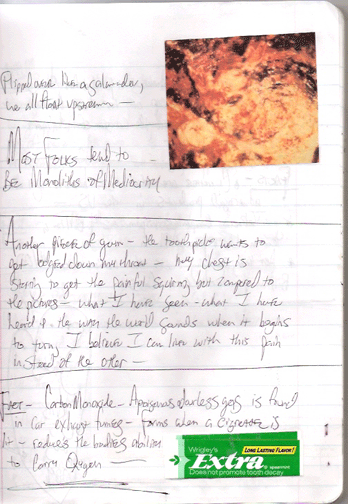 Flipped over like a calendar,
we all float upstream —
Most Folks tend to
Be Monoliths of Mediocrity
Another piece of gum — the toothpick wants to
get lodged down my throat — my chest is
starting to get the painful squirm, but compared to
the pictures — what I have seen — what I have
heard & the way the world sounds when it begins
to turn, I believe I can live with this pain
instead of the other —
Fact — Carbon Monoxide — A poisonous odorless gas is found
in car exhaust fumes — forms when a cigarette is
lit — reduces the bodies abilities
to carry Oxygen
Wrigley's LONG LASTING FLAVOR!
Extra spearmint
Does not promote tooth decay